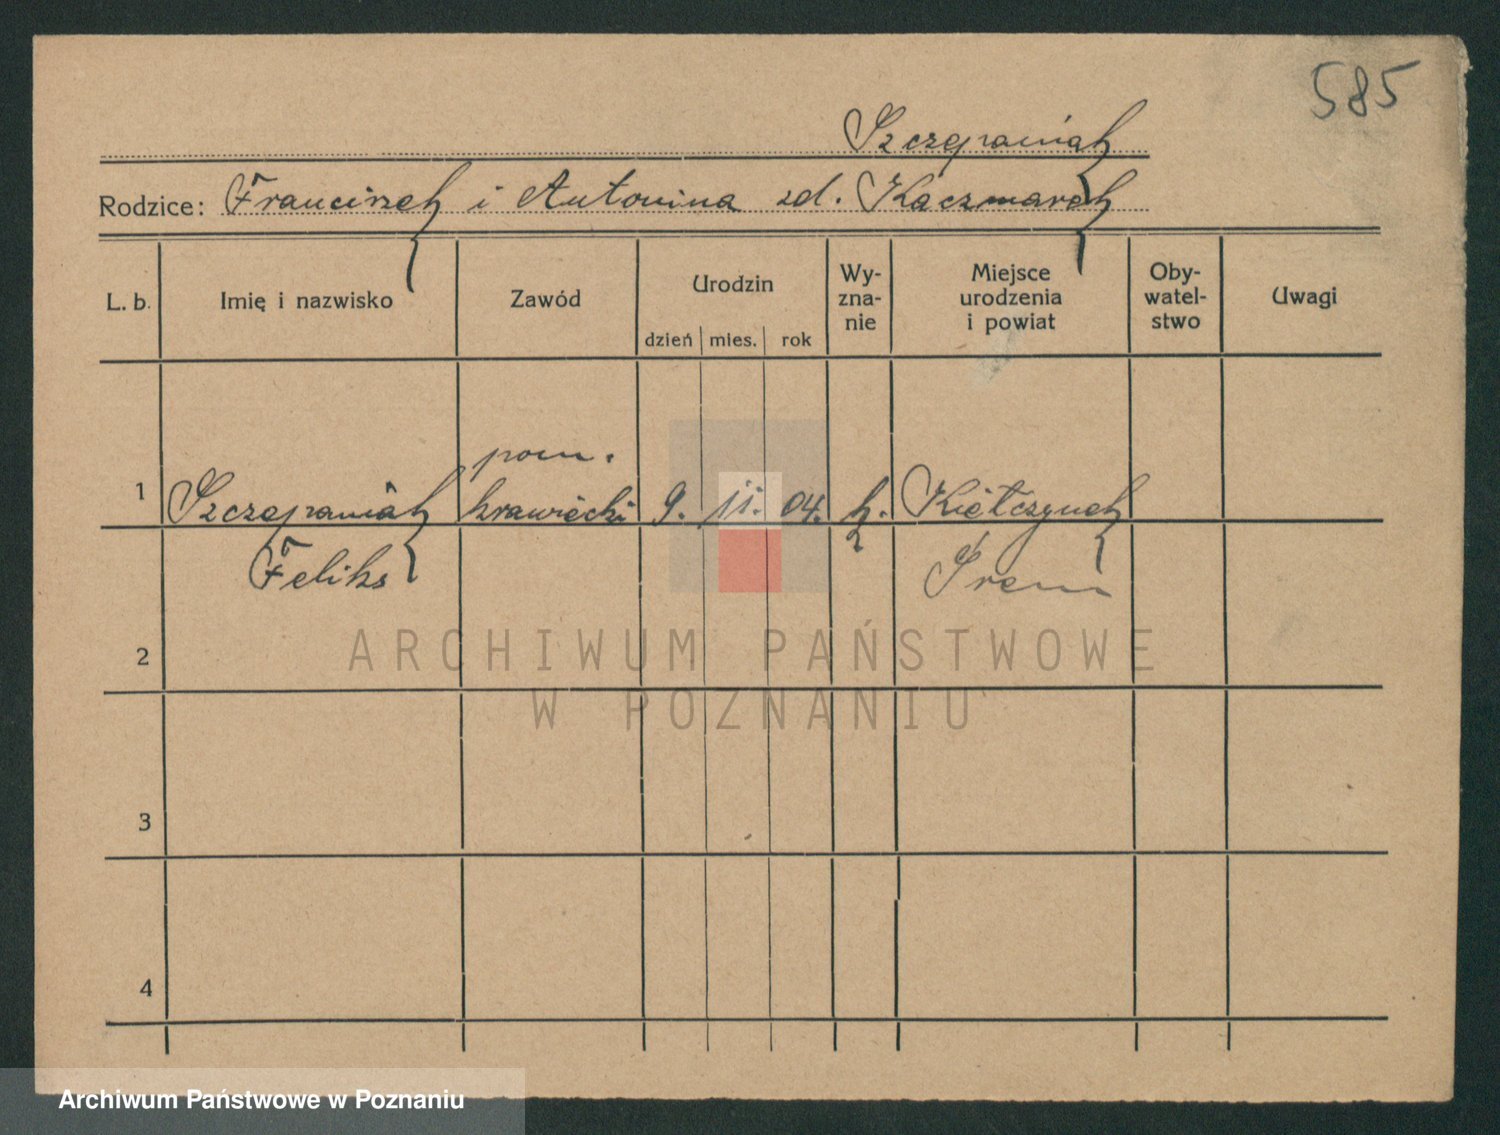 585
Szczepaniak
Rodzice: Franciszek i Antonina zd. Kaczmarek
L. b.
Imię i nazwisko
Zawód
Urodzin
dzień mies. rok
Wy-
zna-
nie
Miejsce
urodzenia
i powiat
Oby-
watel-
stwo
Uwagi
pom.
1 Szczepaniak krawiecki 9. 11. 04. k. Kiełczynek
Feliks Śrem
2
3
4
ARCHIWUM PAŃSTWOWE
W POZNANIU
Archiwum Państwowe w Poznaniu